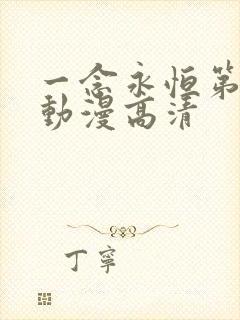 一念永恒第
動漫高清
丁寧